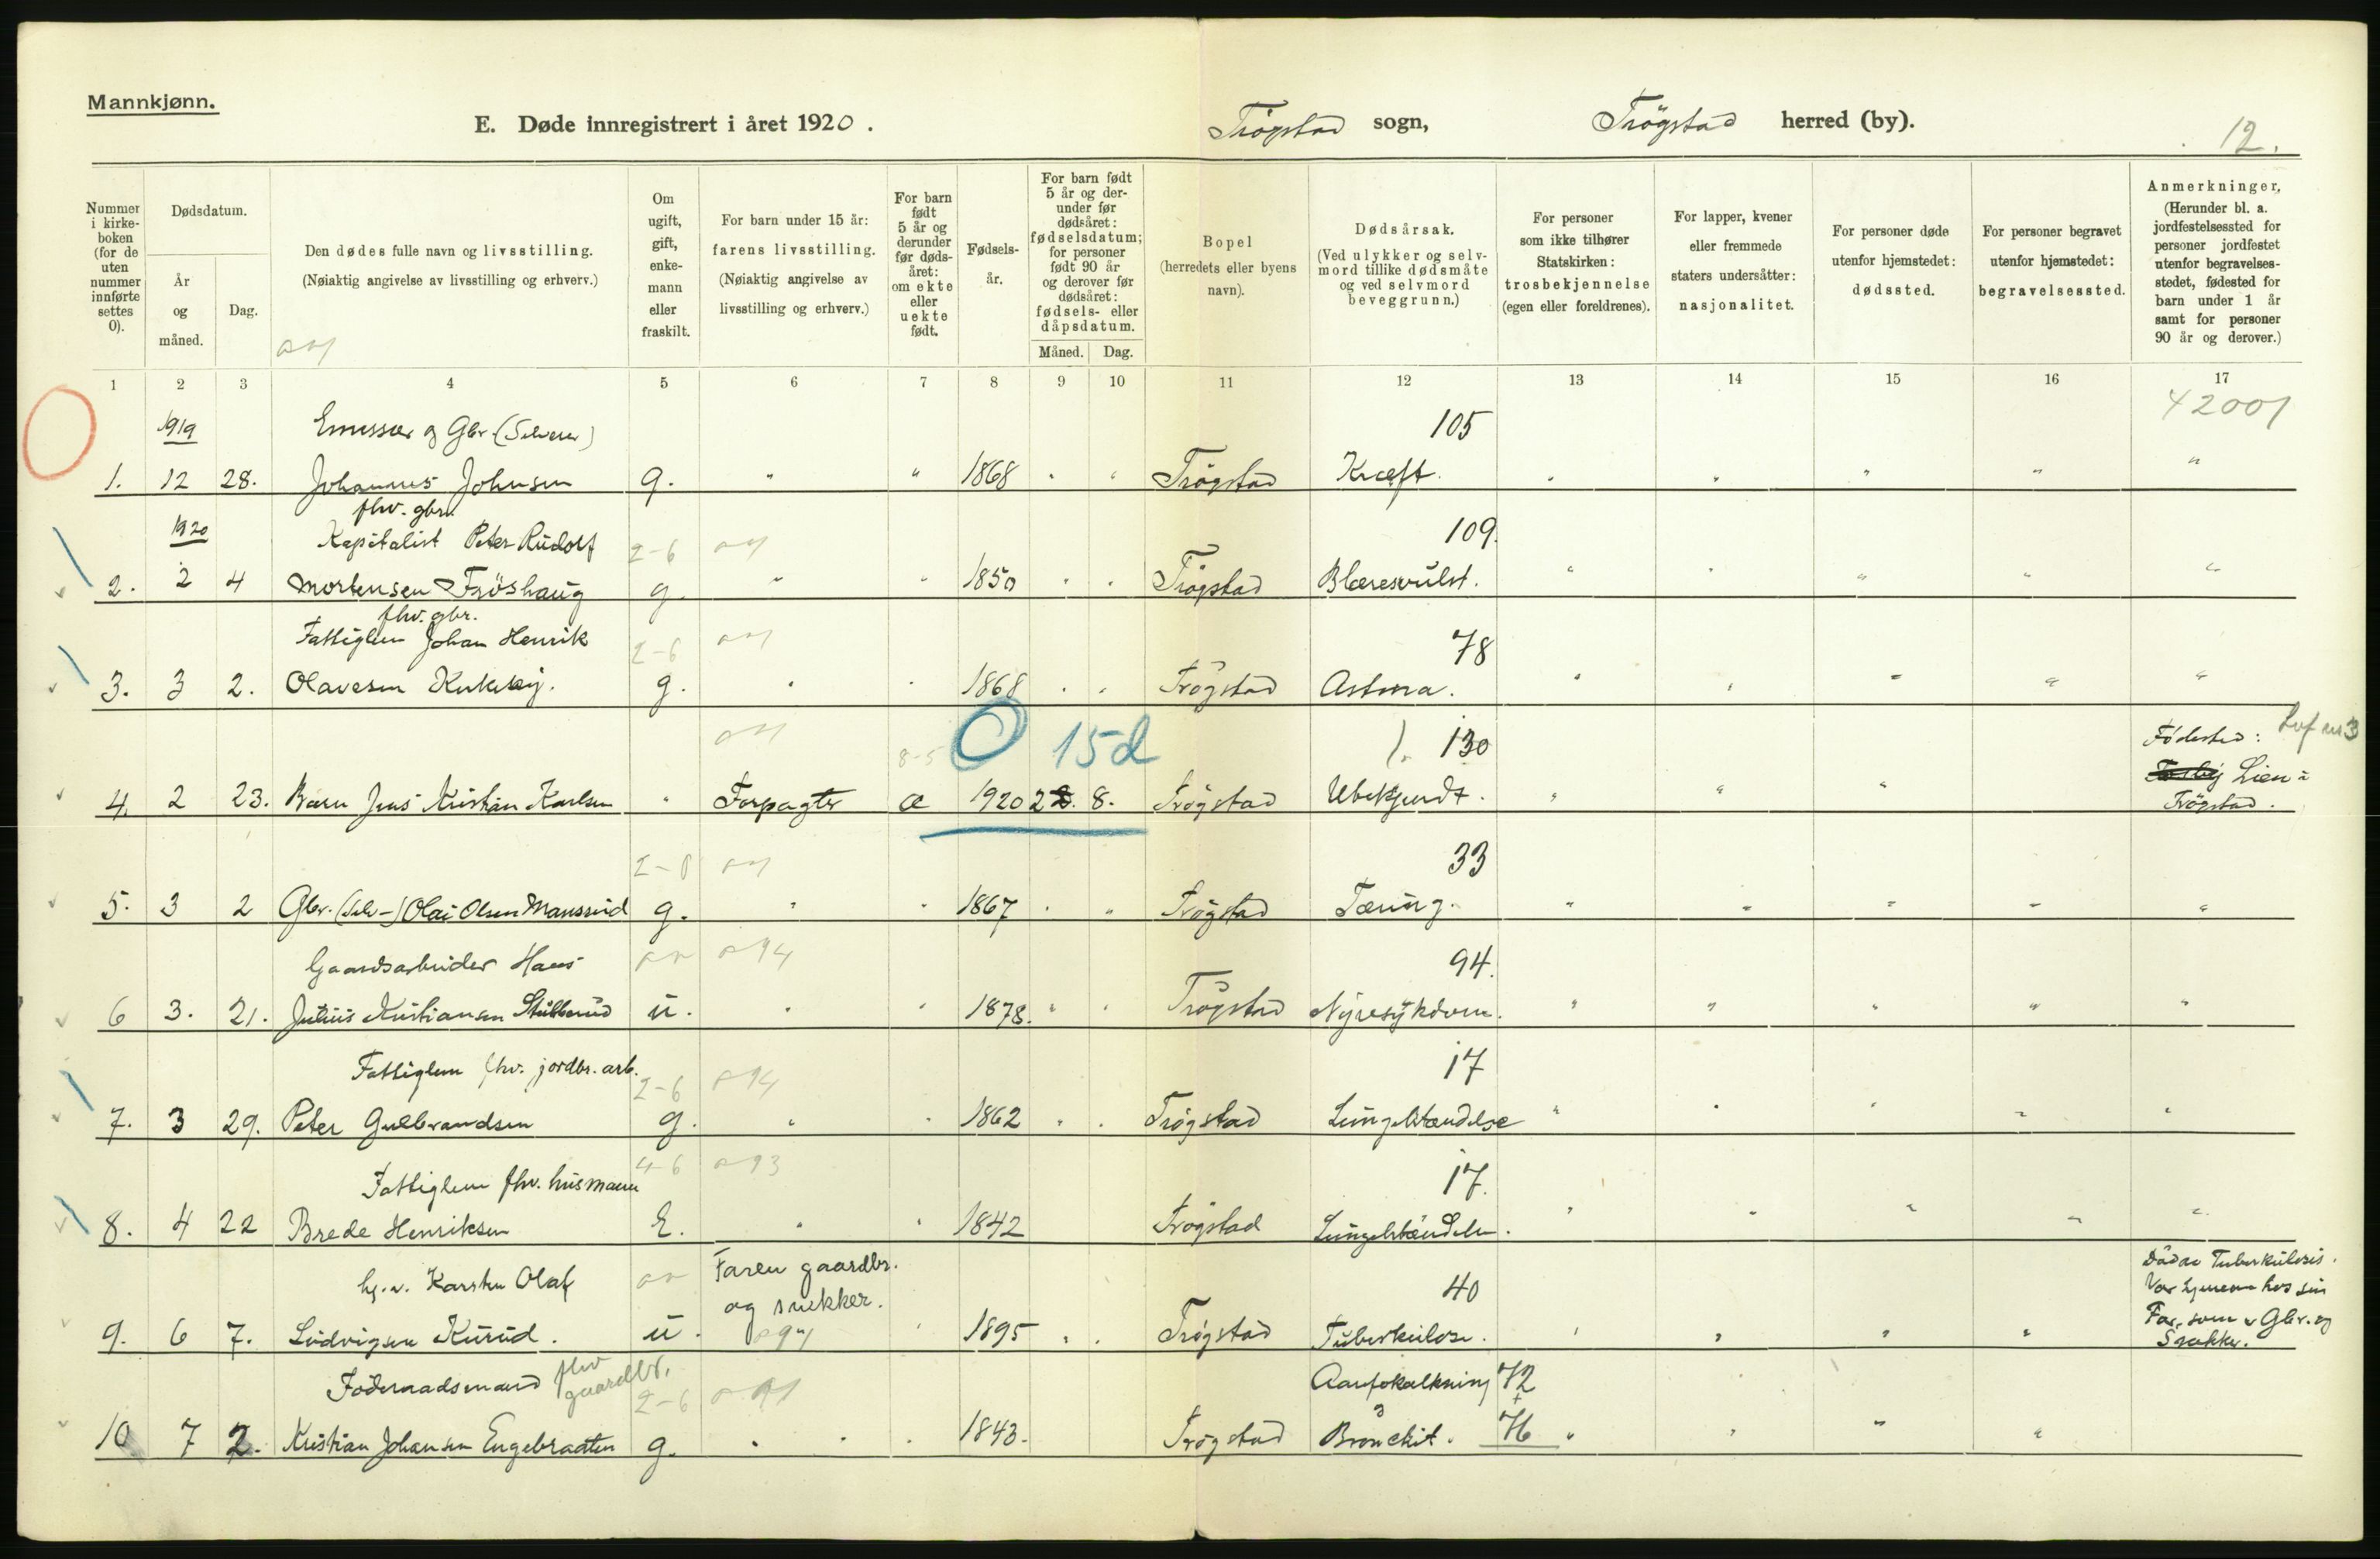 Mannkjønn.
E. Døde innregistrert i året 1920.
Trögstad sogn, Trögstad herred (by).
12.
Nummer i kirke-boken (for de uten nummer innførte settes 0).
Dødsdatum.
År og måned.
Dag.
Den dødes fulle navn og livsstilling.
(Nøiaktig angivelse av livsstilling og erhverv.)
Om ugift, gift, enke-mann eller fraskilt.
For barn under 15 år: farens livsstilling.
(Nøiaktig angivelse av livsstilling og erhverv.)
For barn født 5 år og derunder før døds-året: om ekte eller uekte født.
Fødsels-år.
For barn født 5 år og der-under før dødsåret: fødselsdatum; for personer født 90 år og derover før dødsåret: fødsels- eller dåpsdatum.
Måned. Dag.
Bopel
(herredets eller byens navn).
Dødsårsak.
(Ved ulykker og selv-mord tillike dødsmåte og ved selvmord beveggrunn.)
For personer som ikke tilhører Statskirken: trosbekjennelse (egen eller foreldrenes).
For lapper, kvener eller fremmede staters undersåtter: nasjonalitet.
For personer døde utenfor hjemstedet: dødssted.
For personer begravet utenfor hjemstedet: begravelsessted.
Anmerkninger.
(Herunder bl. a. jordfestelsessted for personer jordfestet utenfor begravelses-stedet, fødested for barn under 1 år samt for personer 90 år og derover.)
1 2 3 4 5 6 7 8 9 10 11 12 13 14 15 16 17
1919 og Gbr. 105
1. 12 28. Johannes Johnsen g. " " 1868 " " Trögstad Kræft. " " " " "
fhv. gbr.
1920 Kapitalist Peter Rudolf 2-6 109.
2. 2 4 Mortensen Fröshaug g. " " 1850 " " Trögstad Blæresvulst. " " " " "
fhv. gbr.
Fattiglem Johan Henrik 2-6 78
3. 3 2. Olavesen g. " " 1868 " " Trögstad Astma. " " " " "
15d 130 Födested:
8-5 Lien i
4. 2 23. Barn Jens Kristian Karlsen " Forpagter æ 1920 2 8. Trögstad Ubekjendt. " " " Trögstad.
33
5. 3 2 Gbr. (Selv-) Olai Olsen g. " " 1867 " " Trögstad Tæring. " " " " "
Gaardsarbeider Hans 94.
6 3. 21. Julius Kristiansen u. " " 1878. " " Trögstad Nyresykdom. " " " " "
Fattiglem fhv. jordbr. arb. 2-6 17
7. 3 29. Peter Gulbrandsen g. " " 1862 " " Trögstad Lungebetændelse " " " " "
Fattiglem fhv. husmann 4-6 17.
8. 4 22 Brede Henriksen E. " " 1842 Trögstad Lungebetændelse. " " " " "
hj. v. Karsten Olaf Faren gaardbr. og snekker. 40
9. 6 7. Ludvigsen u. " 1895 " " Trögstad Tuberkulose. " " " "
Döde av Tuberkulosis.
Var hjemme hos sin
Far, som er Gbr. og
Snekker.
Föderaadsmand fhv gaardbr. 2-6 Aareforkalkning 72
+
10 7 2. Kristian Johansen Engebraaten g. " " " 1843. Trögstad Bronchit. 76 " " " "